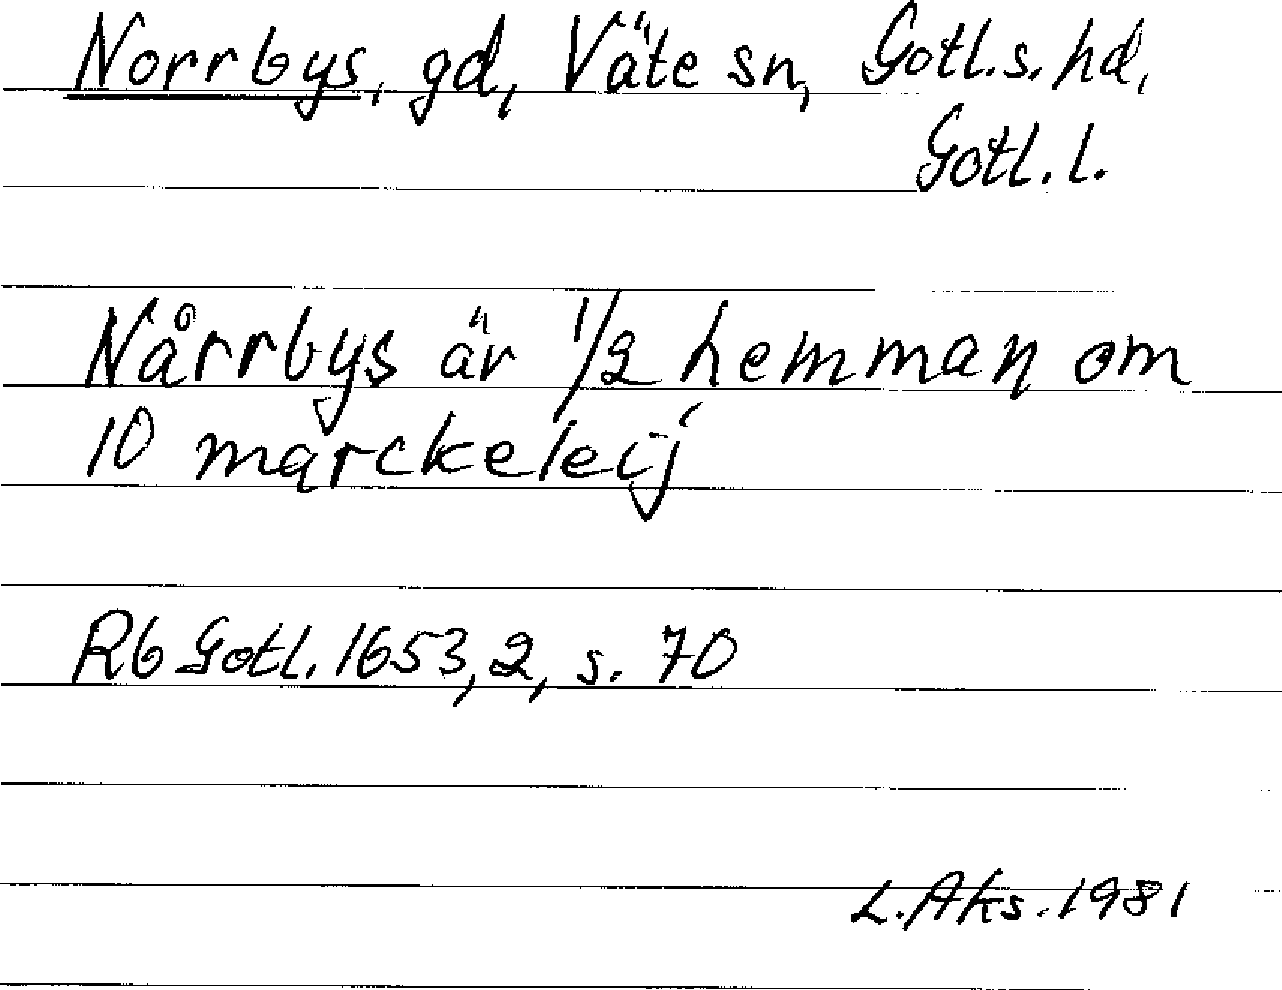 Norrbys, gd, Väte sn, Gotl.s. hd,
Gotl. l.
Nårrbys är 1/2 hemman om
10 marckeleij
Rb Gotl. 1653, 2, s. 70
L. Aks. 1981